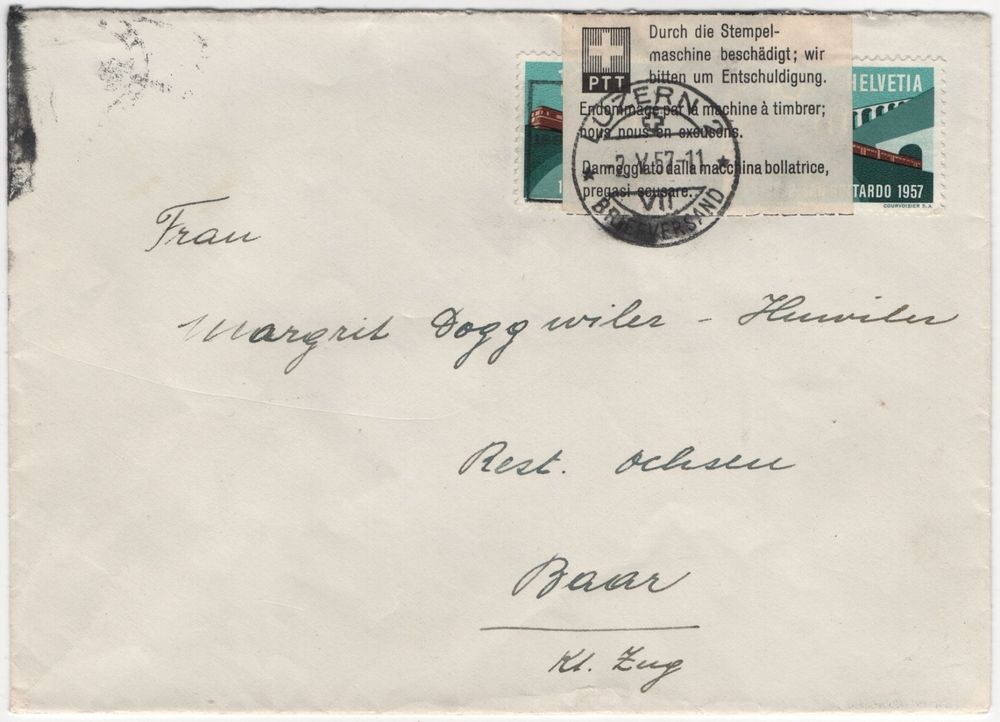 Durch die Stempel-
maschine beschädigt; wir
bitten um Entschuldigung.
PTT
Endommagé par la machine à timbrer;
nous nous en excusons.
Danneggiato dalla macchina bollatrice,
pregasi scusare.
LUZERN 2
2.V.57-11
VII
BRIEFVERSAND
HELVETIA
GOTTARDO 1957
COURVOISIER S.A.
Frau
Margrit Doggwiler - Huwiler
Rest. Ochsen
Baar
Kt. Zug